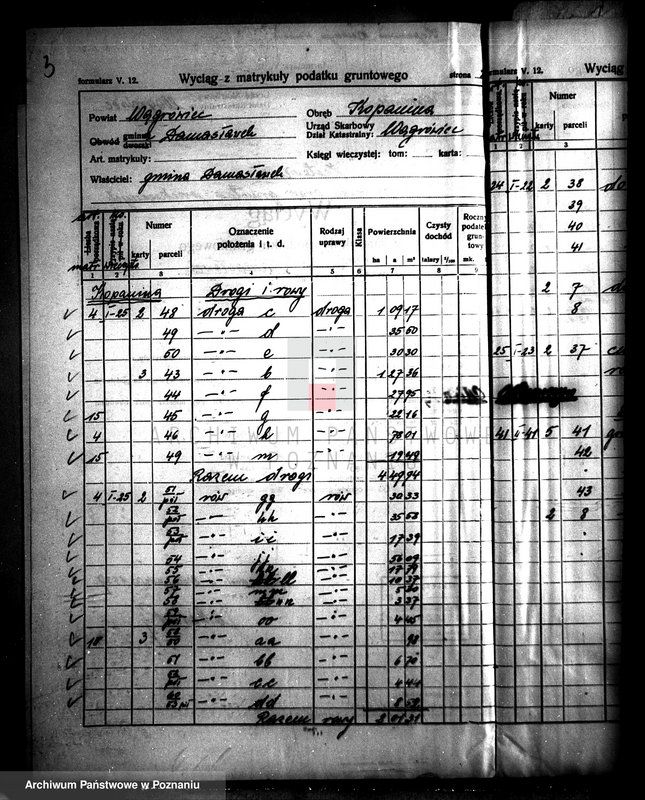 3
formularz V. 12. Wyciąg z matrykuły podatku gruntowego strona
Powiat Wągrówiec Obręb Kopanina
Obwód gminny dworski Damasławek Urząd Skarbowy Dział Katastralny: Wągrówiec
Art. matrykuły: Księgi wieczystej: tom: karta:
Właściciel: gmina Damasławek
Numer Oznaczenie położenia i t. d. Rodzaj uprawy Klasa Powierzchnia Czysty dochód Roczny podatek gruntowy
karty parceli ha a m² talary mk.
1 2 3 4 5 6 7 8 9
Kopanina Drogi i rowy
4 I-25 2 48 droga c droga 1 09 17
49 — " — d — " — 35 60
50 — " — e — " — 30 30
3 43 — " — b — " — 1 27 36
44 — " — f — " — 27 95
15 45 — " — g — " — 22 16
4 46 — " — h — " — 78 01
15 49 — " — m — " — 19 49
Razem drogi 4 49 94
4 I-25 2 51 rów gg rów 30 33
— " — hh — " — 35 53
— " — ii — " — 17 39
54 — " — jj — " — 56 09
55 — " — — " — 17 79
56 — " — ll — " — 10 37
57 — " — — " — 5 30
— " — nn — " — 3 37
— " — oo — " — 4 45
18 3 — " — aa — " — 98
51 — " — bb — " — 6 70
— " — cc — " — 4 44
— " — dd — " — 8 59
Razem rowy 2 01 31
formularz V. 12. Wyciąg
Numer
karty parceli
1 2 3
24 I-22 2 38
39
40
41
2 7
8
25 I-23 2 37
41 I-41 5 41
42
43
2 8
ARCHIWUM PAŃSTWOWE
W POZNANIU
Archiwum Państwowe w Poznaniu